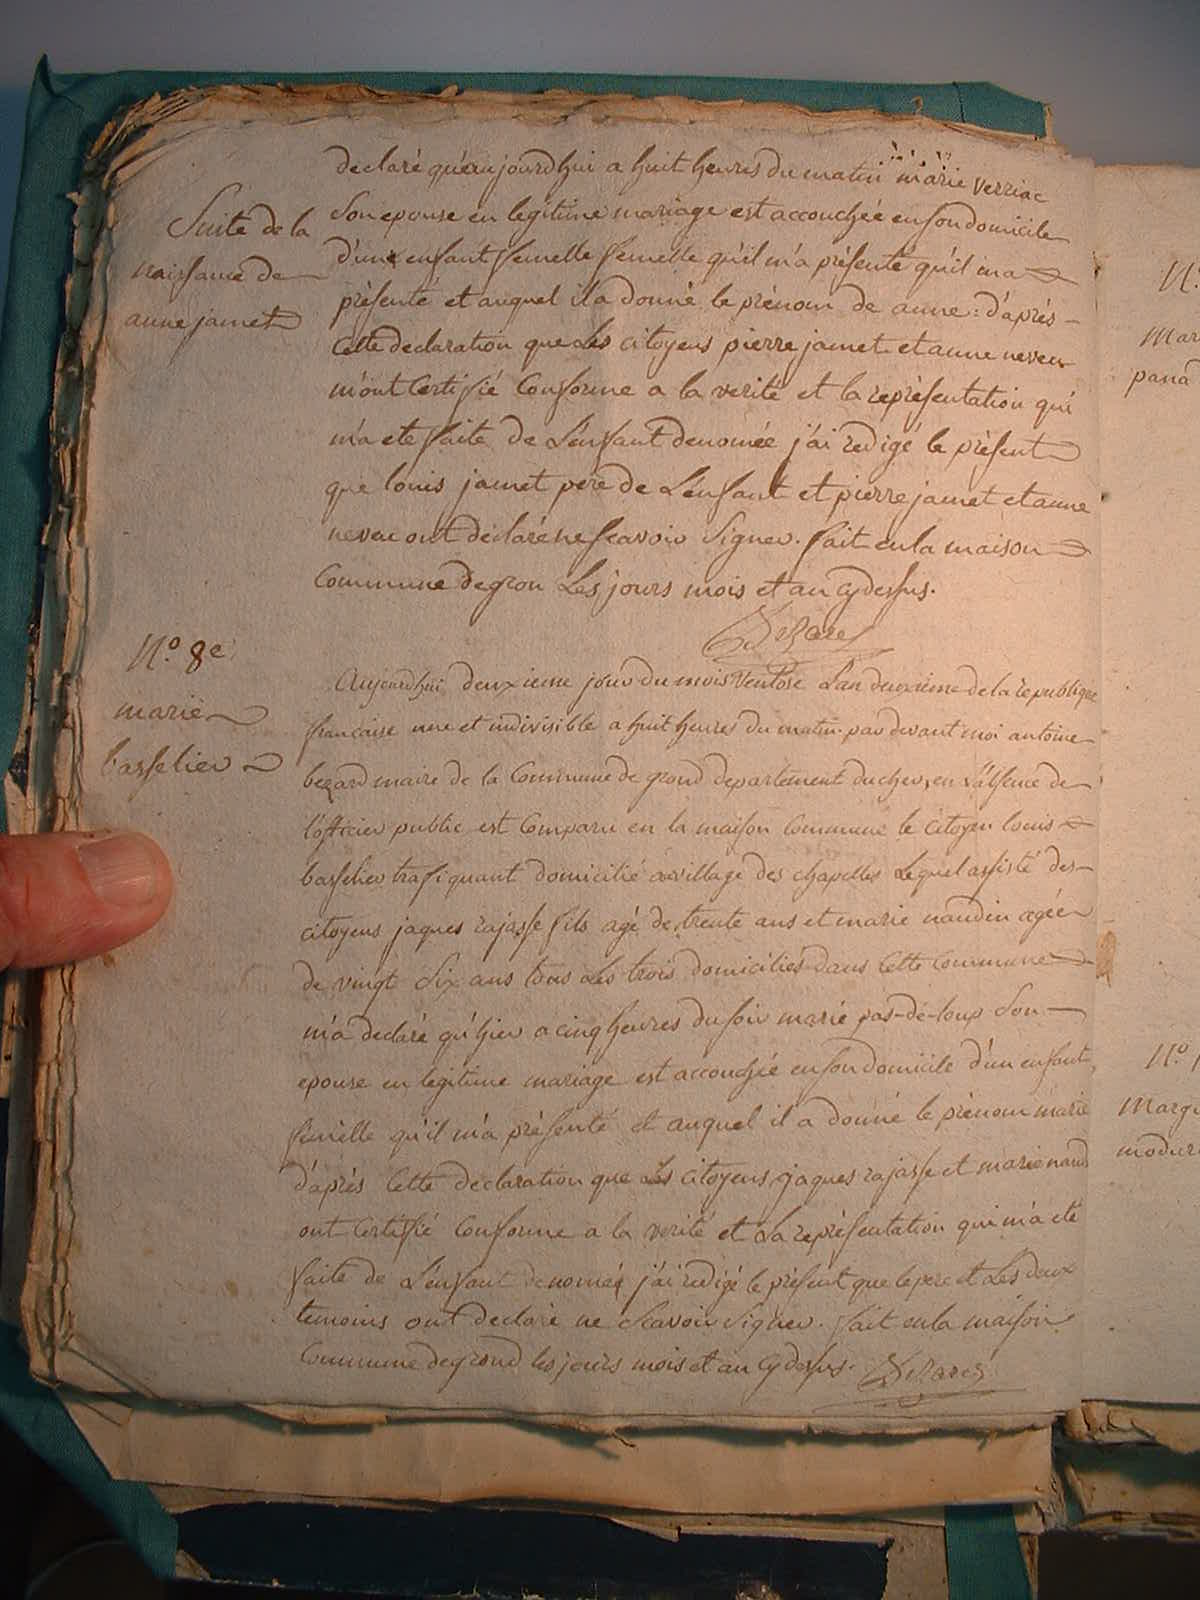 declaré qu'eaujourdhui a huit heures du matin marie verriac
Suite de la
naissance de
anne jamet
Son epouse en legitime mariage est accouchée en son domicile
d'une enfant femelle femelle qu'il m'a présenté qu'il m'a
présenté et auquel il a donné le prénom de anne: d'après
cette declaration que Les citoyens pierre jamet et anne neveu
m'ont Certifié Conforme a la verité et la représentation qui
m'a eté faite de L'enfant denomée j'ai redigé le présent
que louis jamet pere de L'enfant et pierre jamet et anne
neveu ont déclaré ne Scavoir Signer. fait en la maison
Commune de gron Les jours mois et an cy dessus.
N.o 8e
marie
basselier
Aujourdhui deuxieme jour du mois Ventose L'an deuxieme de la republique
francaise une et indivisible a huit heures du matin par devant moi antoine
bezard maire de la Commune de grond departement du cher, en L'absence de
l'officier public est Comparu en la maison Commune le Citoyen louis
basselier trafiquant domicilié au village des chapelles Lequel assisté des
citoyens jaques rajasse fils agé de trente ans et marie naudin agée
de vingt Six ans tous Les trois domiciliés dans Cette Commune
m'a declaré qu'hier a cinq heures du soir marie pas-de-loup Son
epouse en legitime mariage est accouchée en son domicile d'un enfant
femelle qu'il m'a présenté et auquel il a donné le prénom marie
d'après Cette declaration que Les citoyens jaques rajasse et marie naud
ont Certifié Conforme a la verité et La représentation qui m'a eté
faite de L'enfant denomée j'ai redigé le présent que le pere et Les deux
temoins ont declaré ne Scavoir Signer. fait en la maison
Commune de grond les jours mois et an cy dessus.
N.
Mar
pana
N.o
Margu
modur